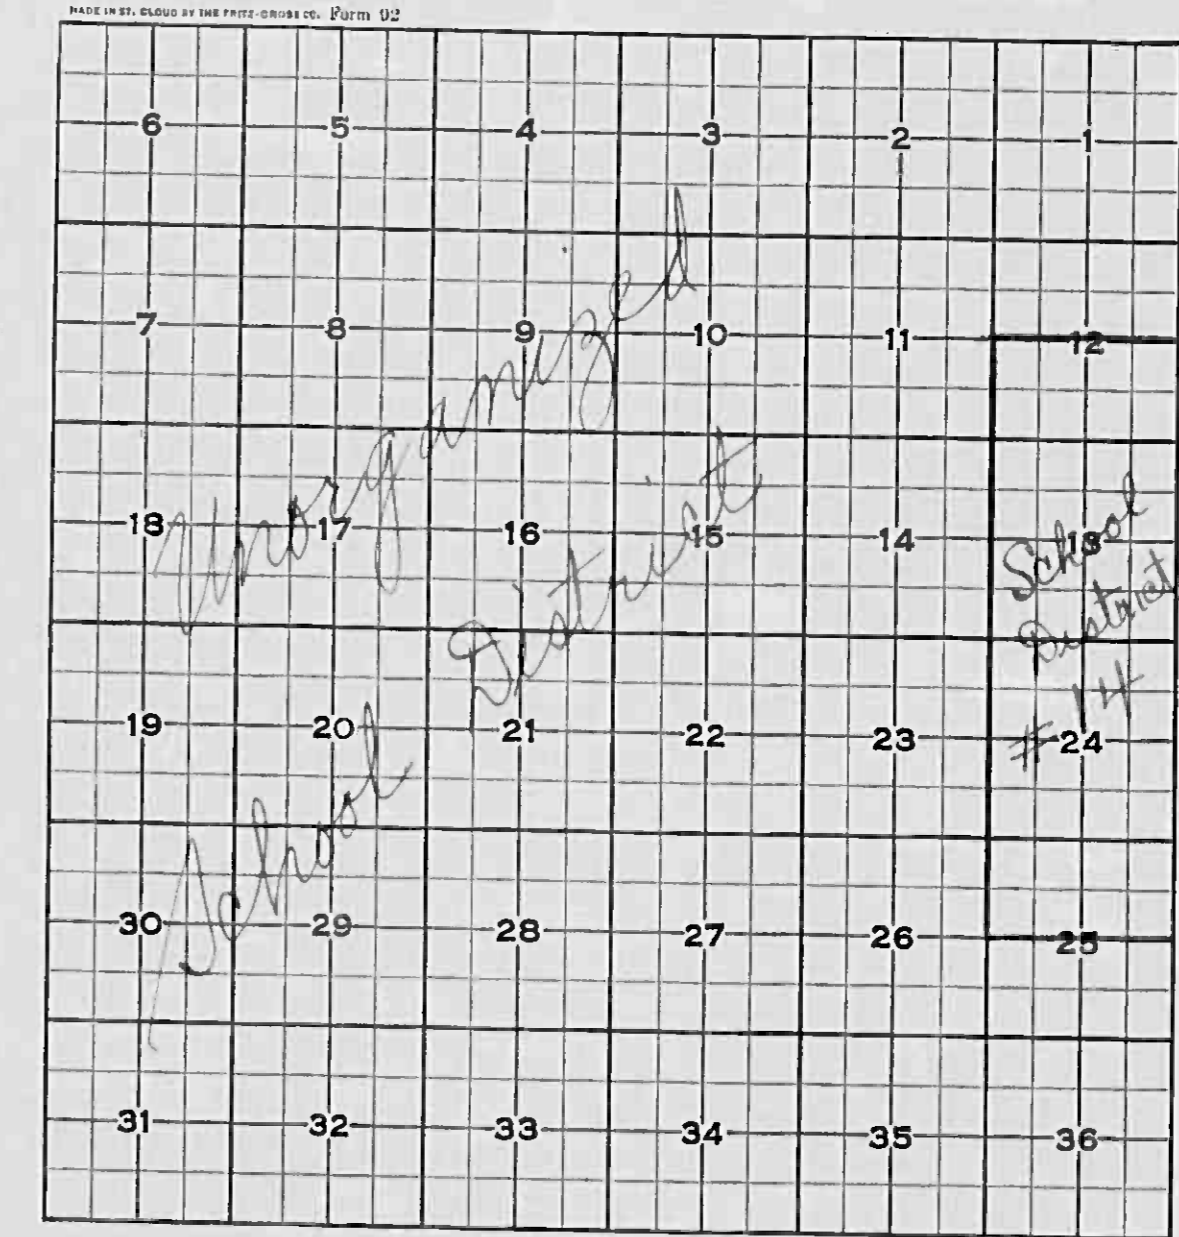 MADE IN ST. CLOUD BY THE FRITZ-CROSS CO. Form 92
6 5 4 3 2 1
7 8 9 10 11 12
18 17 16 15 14 13
19 20 21 22 23 24
30 29 28 27 26 25
31 32 33 34 35 36
Unorganized
School District
School
District
# 14